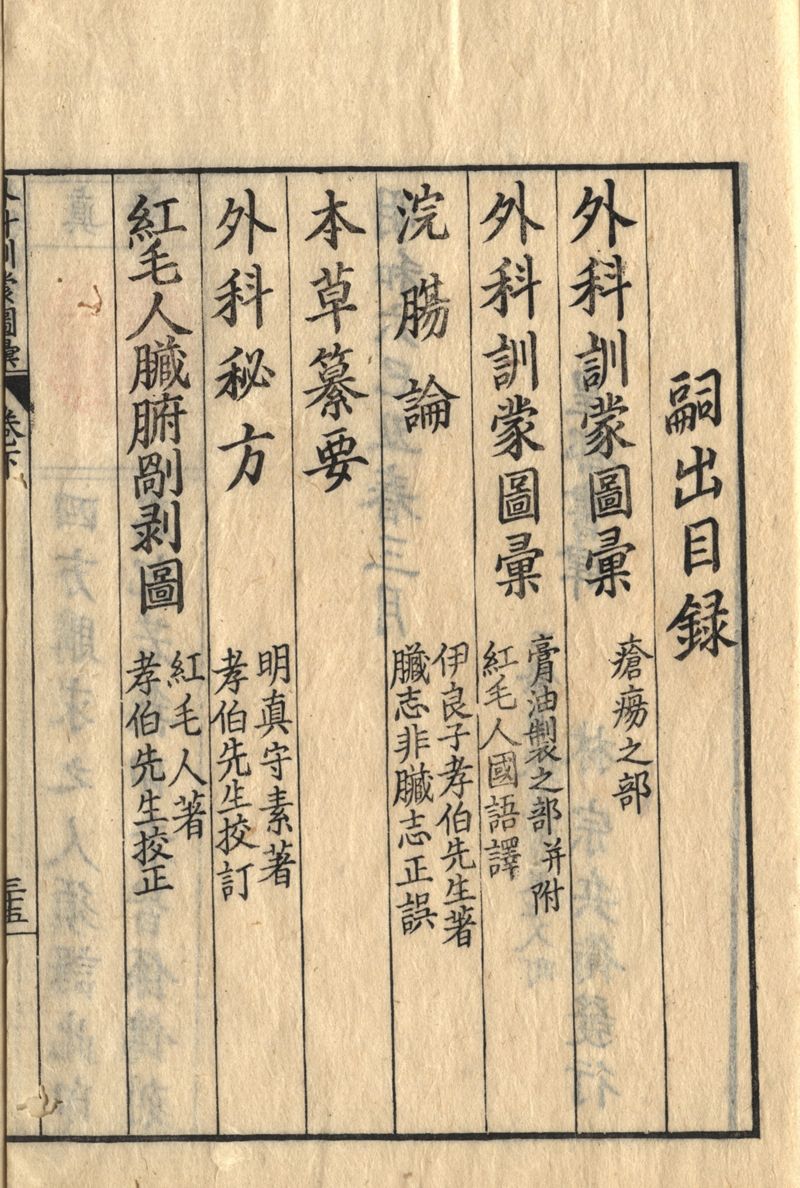 嗣出目録
外科訓蒙圖彙 瘡瘍之部
外科訓蒙圖彙 膏油製之部并附
紅毛人國語譯
浣腸論 伊良子孝伯先生著
臟志非臟志正誤
本草纂要
外科秘方 明真守素著
孝伯先生挍訂
紅毛人臟腑剮剥圖 紅毛人著
孝伯先生挍正
外科訓蒙圖彙 卷下 三五